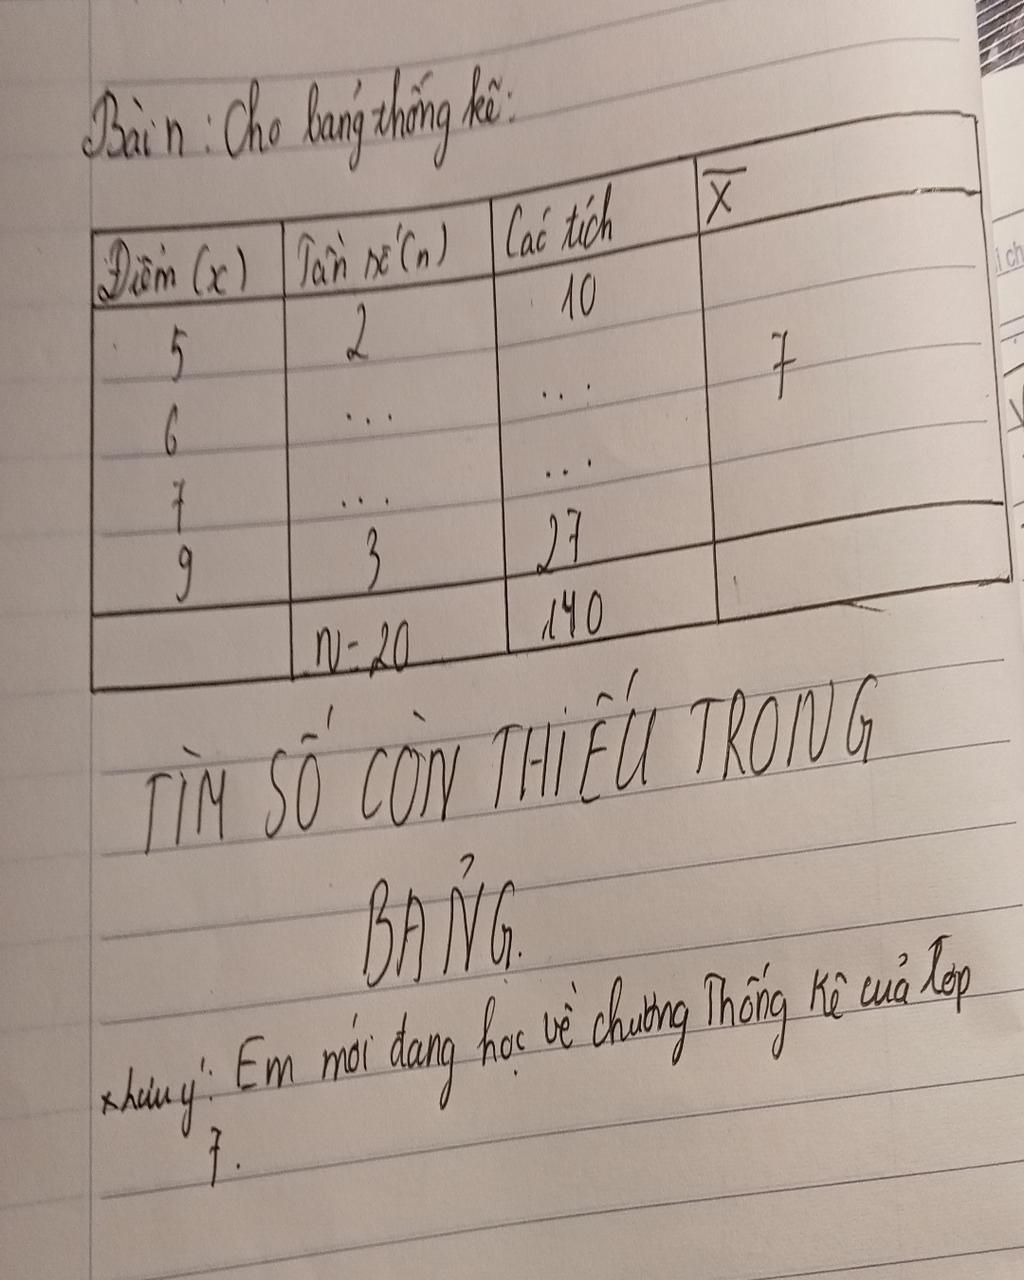 Bài n: Cho bảng thống kê:
Điểm (x) Tần số (n) Các tích X̅
5 2 10
6 ... ... 7
7 ... ...
9 3 27
N = 20 140
TÌM SỐ CÒN THIẾU TRONG
BẢNG.
* Lưu ý: Em mới đang học về chương Thống Kê của lớp
7.